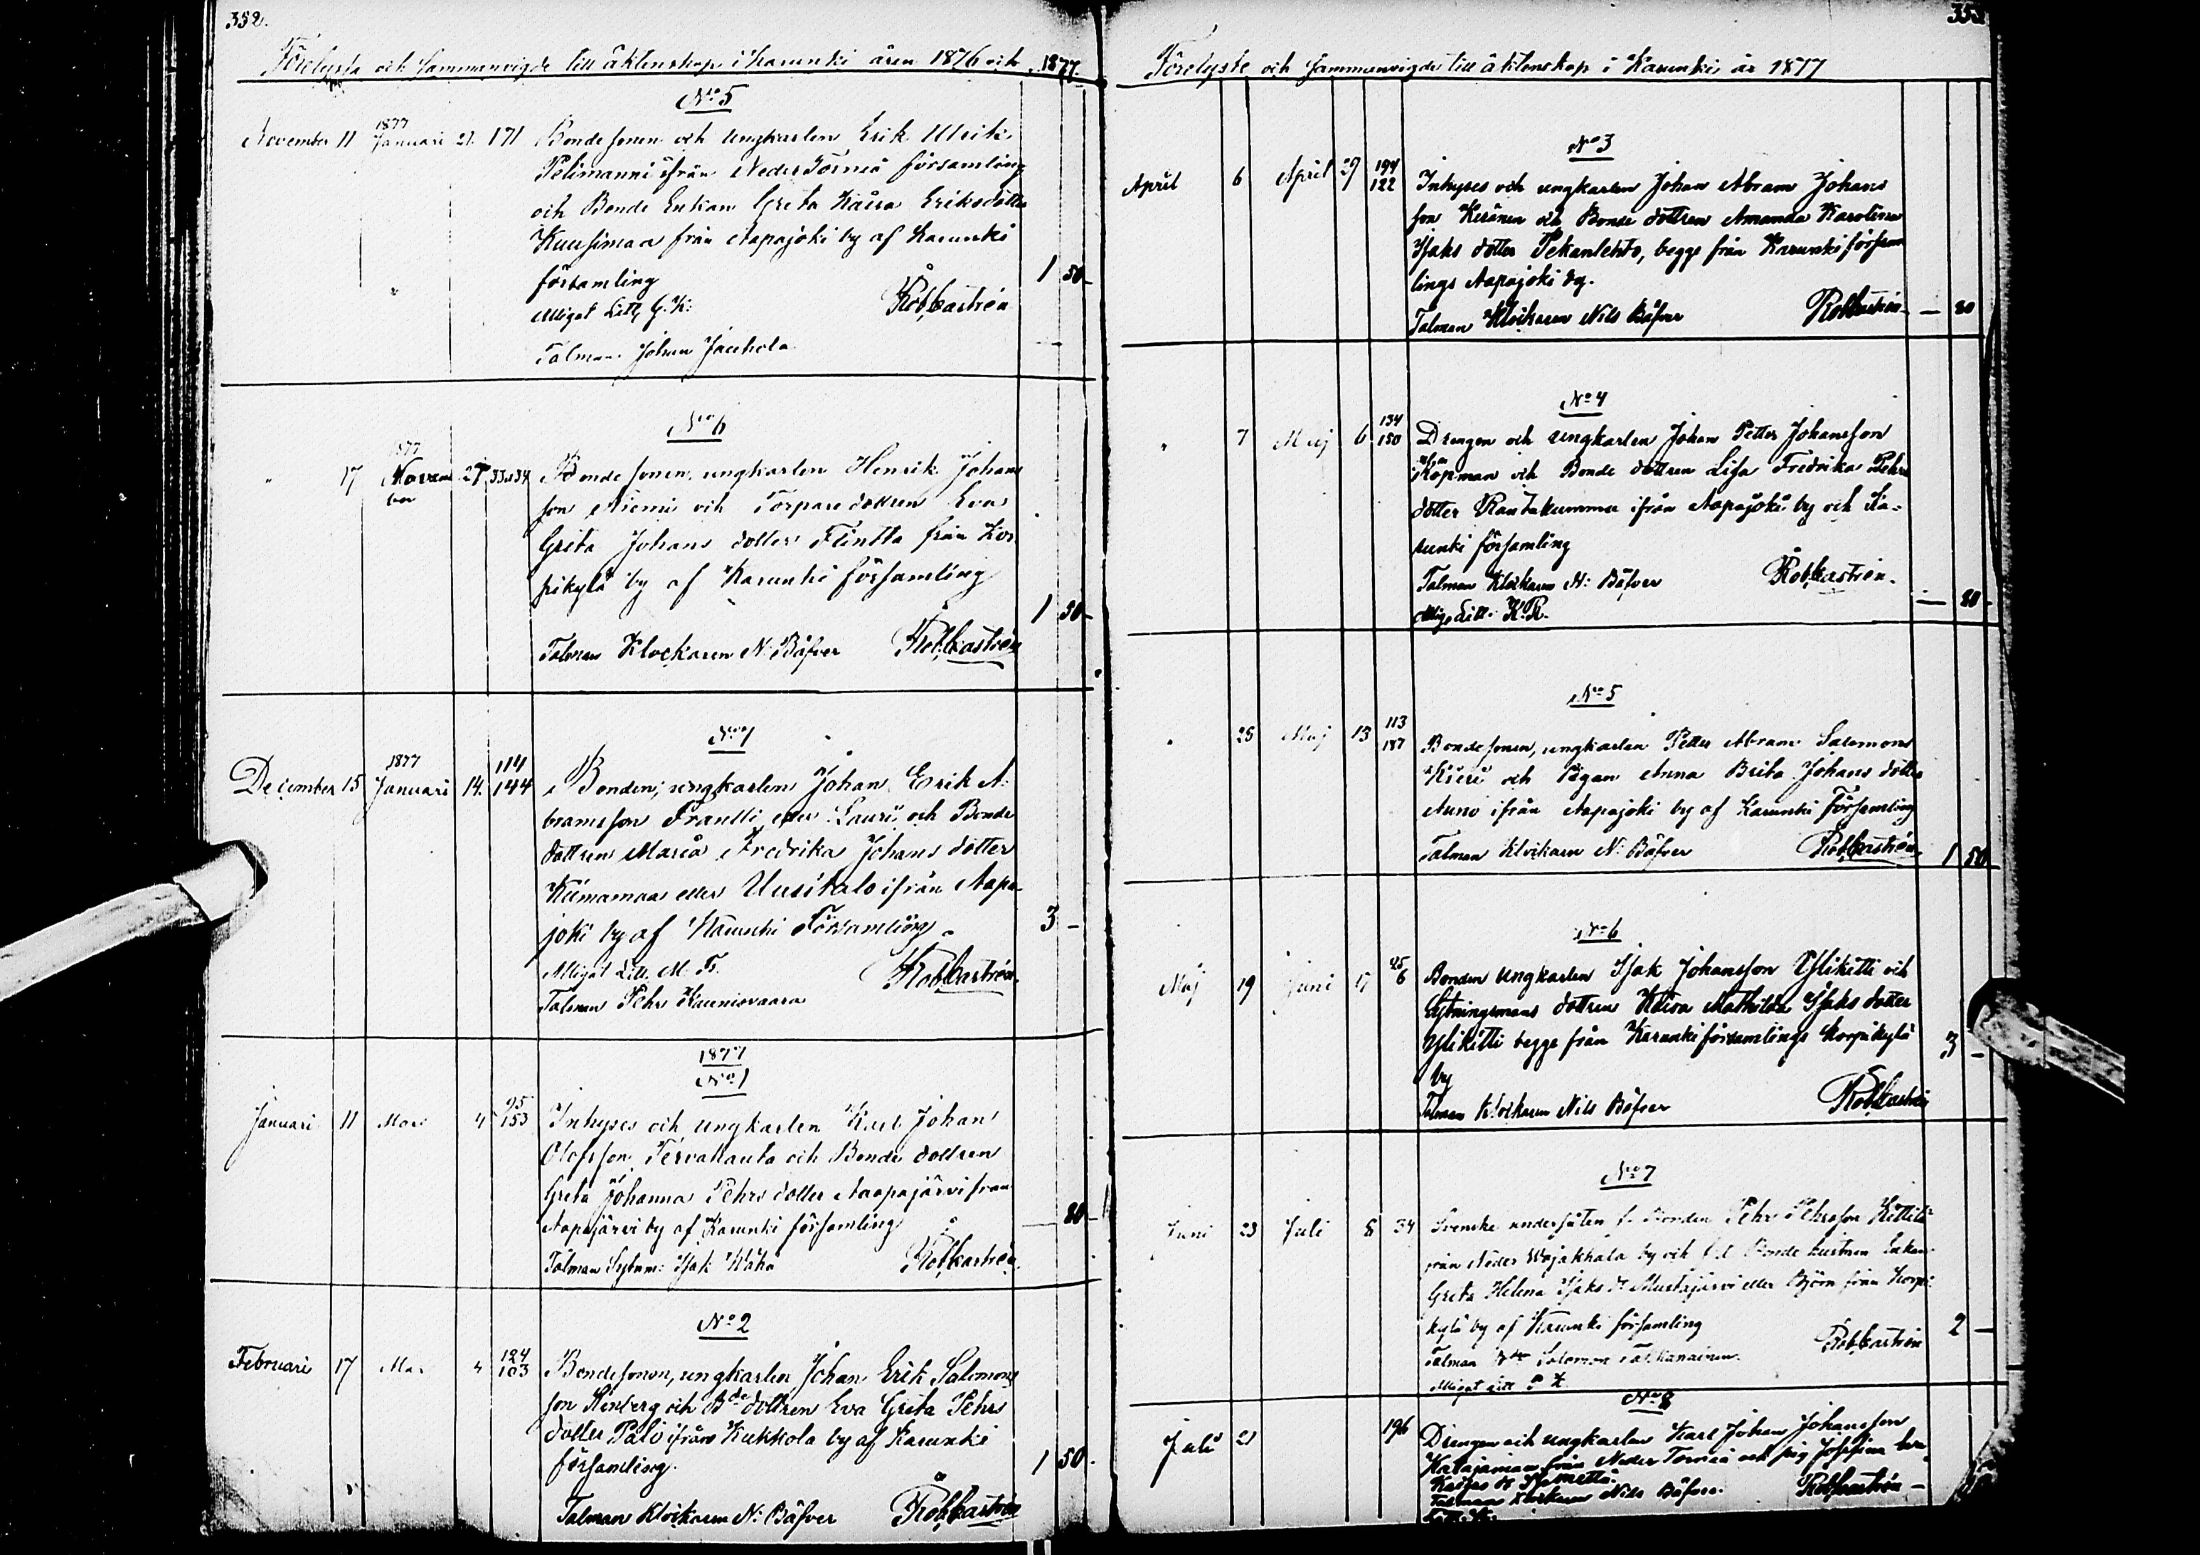 352.
Förelysta och Sammanvigde till äktenskap i Karunki åren 1876 och 1877
No 5
November 11 1877 Januari 21. 171 Bondesonen och ungkarlen Erik Ulrik
Pelimanni ifrån Neder Torneå församling
och Bonde Enkan Greta Kaisa Eriksdotter
Kuusimaa från Aapajoki by af Karunki
församling 1 50
Alligat Litt. G. K: Rob. Castrén
Talman Johan Jauhola
No 6
" 17 1877 Novem ber 33 & 34 Bondesonen, ungkarlen Henrik Johans
son Niemi och Torparedottren Eva
Greta Johans dotter Flintta från Kor
pikylä by af Karunki församling
1 50
Talman Klockaren N: Bäfver Rob. Castrén
No 7
December 15 1877 Januari 14. 114 144 Bonden, ungkarlen Johan Erik A-
bramsson Frantti eller Lauri och Bonde
dottren Maria Fredrika Johans dotter
Kiimamaa eller Uusitalo ifrån Aapa-
joki by af Karunki Församling. 3 -
Alligat Litt. M. F. Rob. Castrén
Talman Pehr Kauniovaara
1877
No 1
Januari 11 Mars 4 95 153 Inhyses och ungkarlen Karl Johan
Olofsson Tervahauta och Bonde dottren
Greta Johanna Pehrs dotter Aapajärvi från
Aapajärvi by af Karunki församling - 80 -
Talman Sytnm: Isak Waha Rob. Castrén
No 2
Februari 17 Mars 4 124 103 Bondesonen, ungkarlen Johan Erik Salomons
son Kinberg och Bde dottren Eva Greta Pehrs
dotter Palo ifrån Kukkola by af Karunki
församling. 1 50.
Talman Klockaren N: Bäfver Rob. Castrén
353
Förelyste och Sammanvigde till äktenskap i Karunki år 1877
No 3
April 6 April 29 194 122 Inhyses och ungkarlen Johan Abram Johans
son Keränen och Bonde dottren Amanda Karolina
Isaks dotter Pekanlehto, begge från Karunki försam
lings Aapajoki by.
Talman Klockaren Nils Bäfver Rob. Castrén - 80
No 4
" 7 Maj 6 134 150 Drengen och ungkarlen Johan Petter Johansson
Köpman och Bonde dottren Lisa Fredrika Pehrs
dotter Rantakummu ifrån Aapajoki by och Ka-
runki församling
Talman Klockaren N: Bäfver Rob. Castrén.
Allig. Litt. K. R. - 80 -
No 5
" 28 Maj 13 113 187 Bondesonen, ungkarlen Petter Abram Salomons
Kieri och Pigan Anna Brita Johans dotter
Anno ifrån Aapajoki by af Karunki Församling
Talman Klockaren N: Bäfver Rob. Castrén. 1 50
No 6
Maj 19 Juni 17 45 6 Bonden ungkarlen Isak Johansson Ylikitti och
Sytningsmans dottren Klara Mathilda Isaks dotter
Ylikitti begge från Karunki församlings Korpikylä 3 -
by
Talman Klockaren Nils Bäfver Rob. Castrén
No 7
Juni 23 Juli 8 34 Svenske undersåten f. Bonden Pehr Pehrsson Kittilä
från Neder Wojakkala by och f.d. Bonde hustrun Enkan
Greta Helena Isaks dr Mustajärvi eller Björn från Korpi-
kylä by af Karunki församling 2 -
Talman Salomon Rob. Castrén
Alligat Litt P. K.
No 8
Juli 21 196 Drengen och ungkarlen Karl Johan Johansson
Katajamaa från Neder Torneå och pig Josefina
Kaisas dr
Talman Klockaren Nils Bäfver. Rob. Castrén -